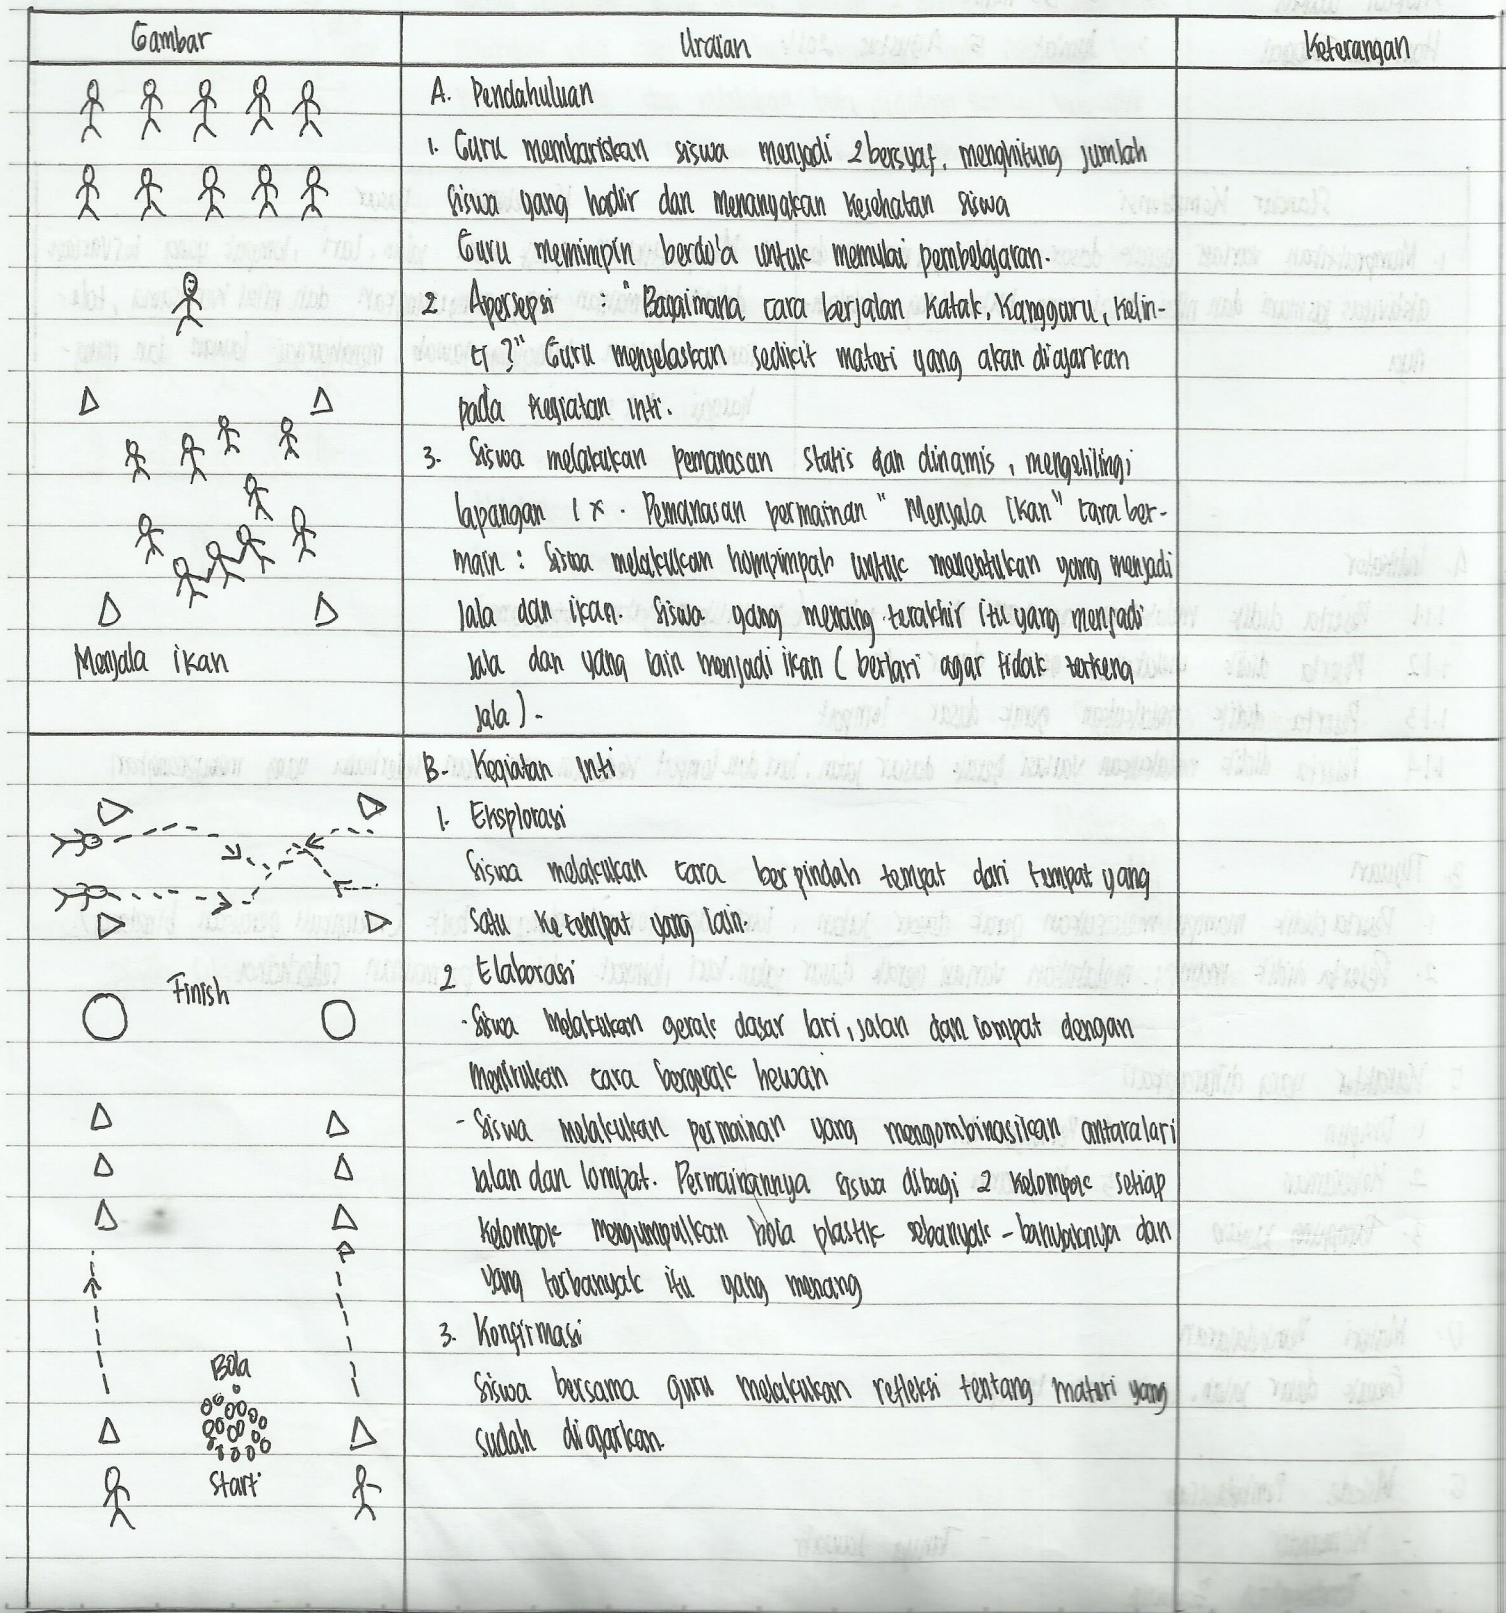 Gambar
Uraian
Keterangan
A. Pendahuluan
1. Guru membariskan siswa menjadi 2 bersyaf, menghitung jumlah
siswa yang hadir dan menanyakan kesehatan siswa
Guru memimpin berdo'a untuk memulai pembelajaran.
2 Apersepsi : "Bagaimana cara berjalan katak, Kangguru, kelin-
ci ?" Guru menjelaskan sedikit materi yang akan diajarkan
pada kegiatan inti.
3. Siswa melakukan pemanasan statis dan dinamis, mengelilingi
lapangan 1 x. Pemanasan permainan "Menjala Ikan" cara ber-
main : Siswa melakukan hompimpah untuk menentukan yang menjadi
jala dan ikan. Siswa yang menang terakhir itu yang menjadi
jala dan yang lain menjadi ikan (berlari agar tidak terkena
jala).
Menjala ikan
B. Kegiatan Inti
1. Eksplorasi
Siswa melakukan cara berpindah tempat dari tempat yang
satu ketempat yang lain.
2 Elaborasi
- Siswa melakukan gerak dasar lari, jalan dan lompat dengan
menirukan cara bergerak hewan
- Siswa melakukan permainan yang mengombinasikan antara lari
jalan dan lompat. Permainannya siswa dibagi 2 kelompok setiap
kelompok mengumpulkan bola plastik sebanyak-banyaknya dan
yang terbanyak itu yang menang
3. Konfirmasi
Siswa bersama guru melakukan refleksi tentang materi yang
sudah diajarkan.
Finish
Bola
Start